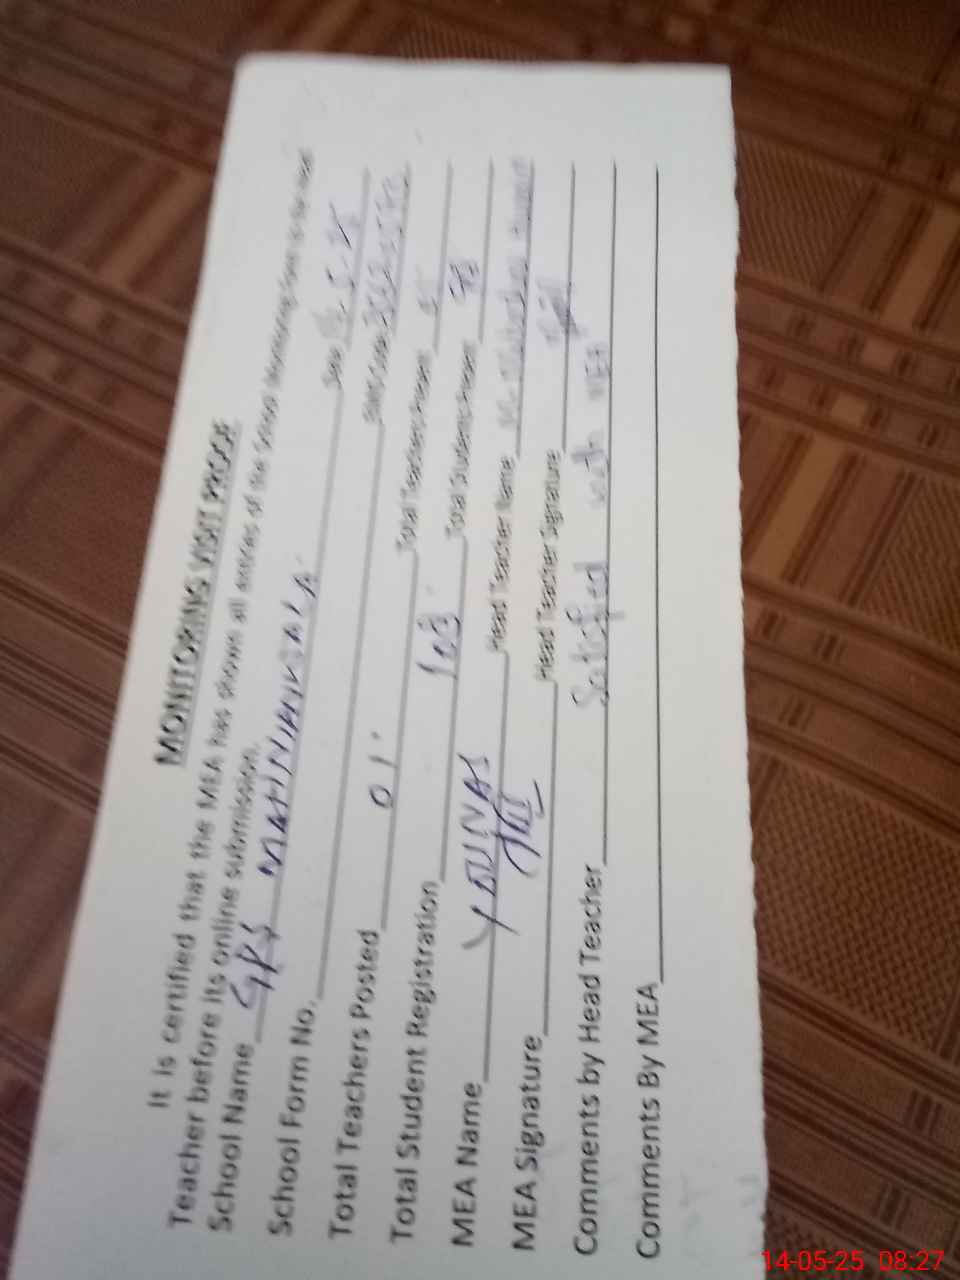 MONITORING VISIT PROOF
It is certified that the MEA has shown all entries of the School Monitoring Form to the Head
Teacher before its online submission.
School Name GPS Date 14.5.25
School Form No. EMIS Code
Total Teachers Posted 01 Total Teachers Present
Total Student Registration 103 Total Students Present 78
MEA Name YOUNAS Head Teacher Name
MEA Signature Head Teacher Signature
Comments by Head Teacher Satisfied with MEA
Comments By MEA
14-05-25 08:27